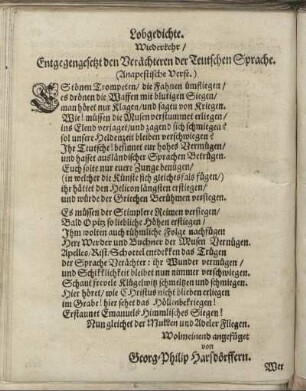 Lobgedichte.
Wiederkehr /
Entgegengesetzt den Verächteren der Teutschen Sprache.
(Anapestische Verse.)
ES tönen Trompeten / die Fahnen ümfliegen /
es drönen die Waffen mit blutigen Siegen /
man höret nur Klagen / und sagen von Kriegen.
Wie! müssen die Musen verstummet erliegen /
ins Elend verjaget / und zagend sich schmiegen?
sol unsere Heldenzeit bleiben verschwiegen?
Ihr Teutsche! besinnet eur hohes Vermügen /
und hasset ausländischer Sprachen Betrügen.
Euch solte nur eure Zunge benügen /
(in welcher die Künste sich gleichesfals fügen /)
ihr hättet den Helicon längsten erstiegen /
und würde der Griechen Berühmen versiegen.
Es müssen der Stümpler Reimen versiegen /
Bald Opitz so liebliche Höhen erfliegen /
Ihm wolten auch rühmliche Folge nachfügen
Herr Werder und Buchner der Musen Vernügen.
Apelles / Rist / Schottel entdekken das Trügen
der Sprache Verächter: ihr Wunder vermügen /
und Schikklichkeit bleibet nun nimmer verschwiegen.
Schaut / wie Christus nicht blieben erliegen
im Grabe! hier sehet das Höllenbekriegen!
Erstaunet Emanuels Himmlisches Siegen!
Nun gleichet der Mukken und Adeler Fliegen.
Wolmeinend angefüget
von
Georg-Philip Harsdörffern.
Wer